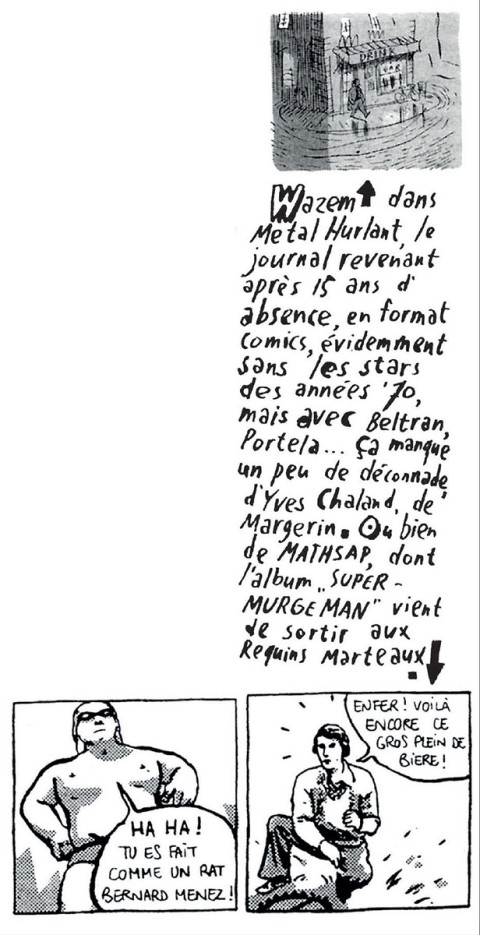 DRINK
BAR
Wazem dans
Métal Hurlant, le
journal revenant
après 15 ans d'
absence, en format
comics, évidemment
sans les stars
des années '70,
mais avec Beltran,
Portela... Ça manque
un peu de déconnade
d'Yves Chaland, de
Margerin. Ou bien
de MATHSAP, dont
l'album „SUPER-
MURGEMAN" vient
de sortir aux
Requins Marteaux.
HA HA!
TU ES FAIT
COMME UN RAT
BERNARD MENEZ!
ENFER! VOILÀ
ENCORE CE
GROS PLEIN DE
BIÈRE!